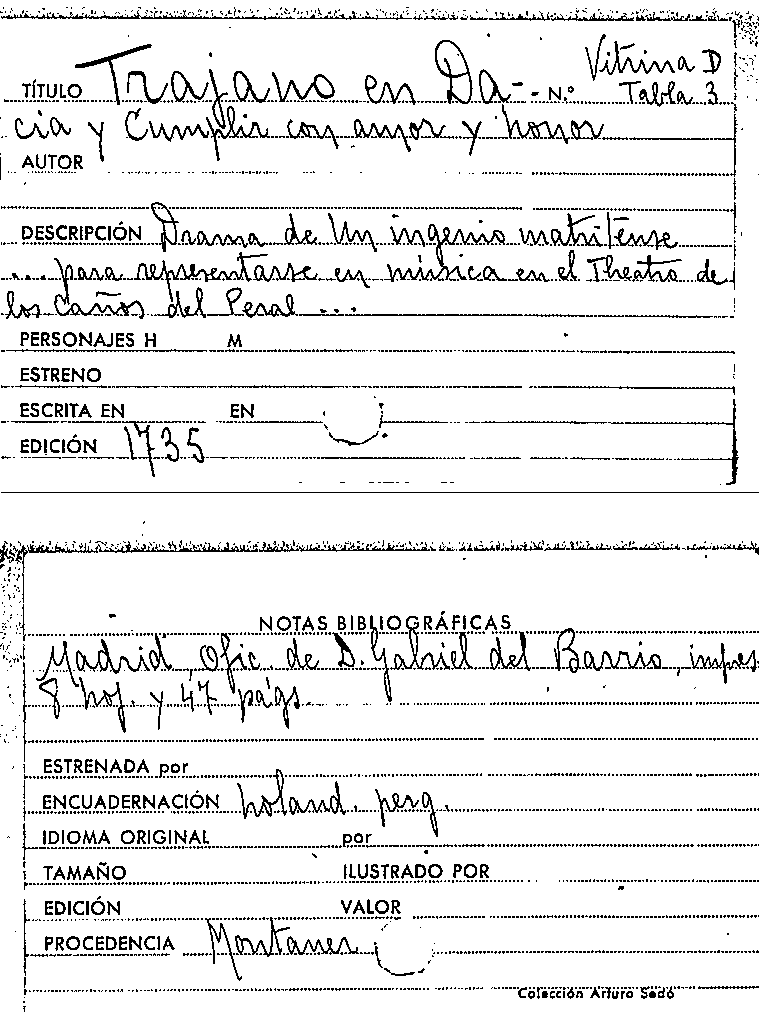 Vitrina D
TÍTULO Trajano en Da- - N.º Tabla 3
cia y Cumplir con amor y honor
AUTOR
DESCRIPCIÓN Drama de Un ingenio matritense
... para representarse en música en el Theatro de
los Caños del Peral ...
PERSONAJES H M
ESTRENO
ESCRITA EN EN
EDICIÓN 1735
NOTAS BIBLIOGRÁFICAS
Madrid, Ofic. de D. Gabriel del Barrio, impres.
8 hoj. y 47 págs.
ESTRENADA por
ENCUADERNACIÓN holand. perg.
IDIOMA ORIGINAL por
TAMAÑO ILUSTRADO POR
EDICIÓN VALOR
PROCEDENCIA Montaner
Colección Arturo Sedó